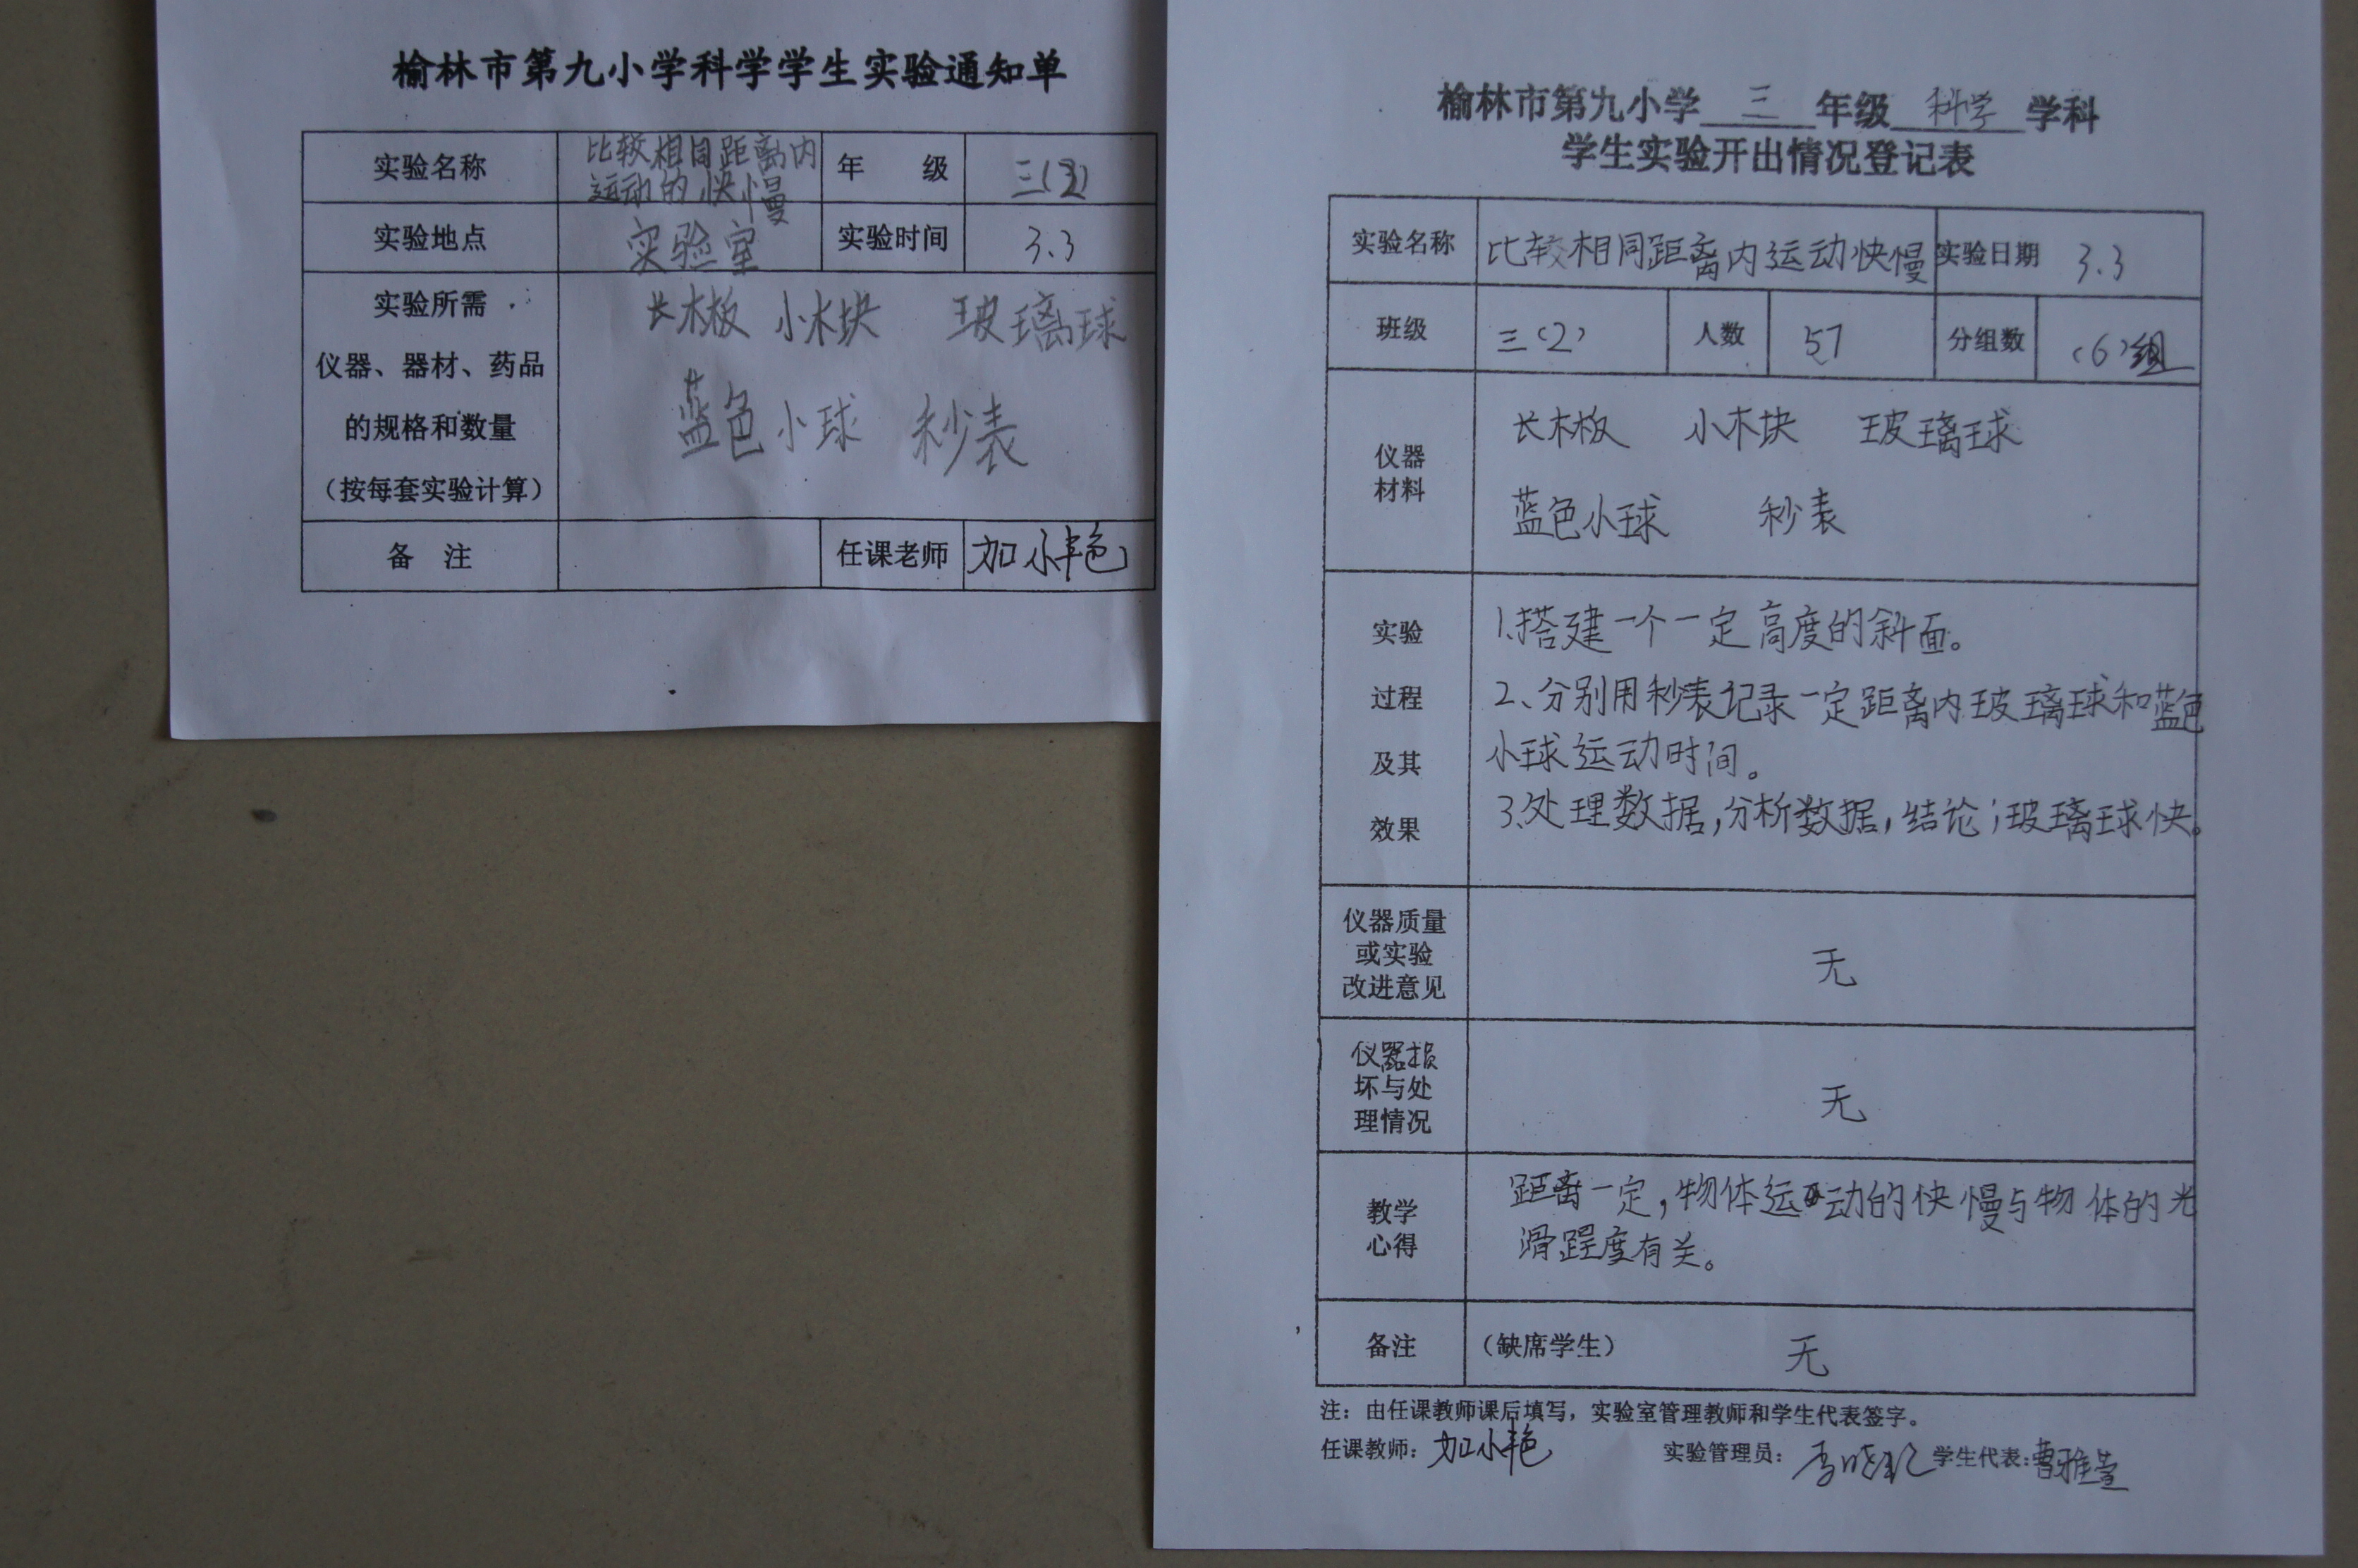 榆林市第九小学科学学生实验通知单
实验名称 比较相同距离内
运动的快慢
年 级 三(2)
实验地点 实验室 实验时间 3.3
实验所需
仪器、器材、药品
的规格和数量
（按每套实验计算）
长木板 小木块 玻璃球
蓝色小球 秒表
备 注 任课老师 加小艳
榆林市第九小学 三 年级 科学 学科
学生实验开出情况登记表
实验名称 比较相同距离内运动快慢 实验日期 3.3
班级 三(2) 人数 57 分组数 (6)组
仪器
材料
长木板 小木块 玻璃球
蓝色小球 秒表
实验
过程
及其
效果
1.搭建一个一定高度的斜面。
2、分别用秒表记录一定距离内玻璃球和蓝色
小球运动时间。
3.处理数据,分析数据,结论;玻璃球快。
仪器质量
或实验
改进意见
无
仪器损
坏与处
理情况
无
教学
心得
距离一定,物体运动的快慢与物体的光
滑程度有关。
备注 （缺席学生） 无
注：由任课教师课后填写，实验室管理教师和学生代表签字。
任课教师：加小艳 实验管理员： 学生代表：曹雅萱